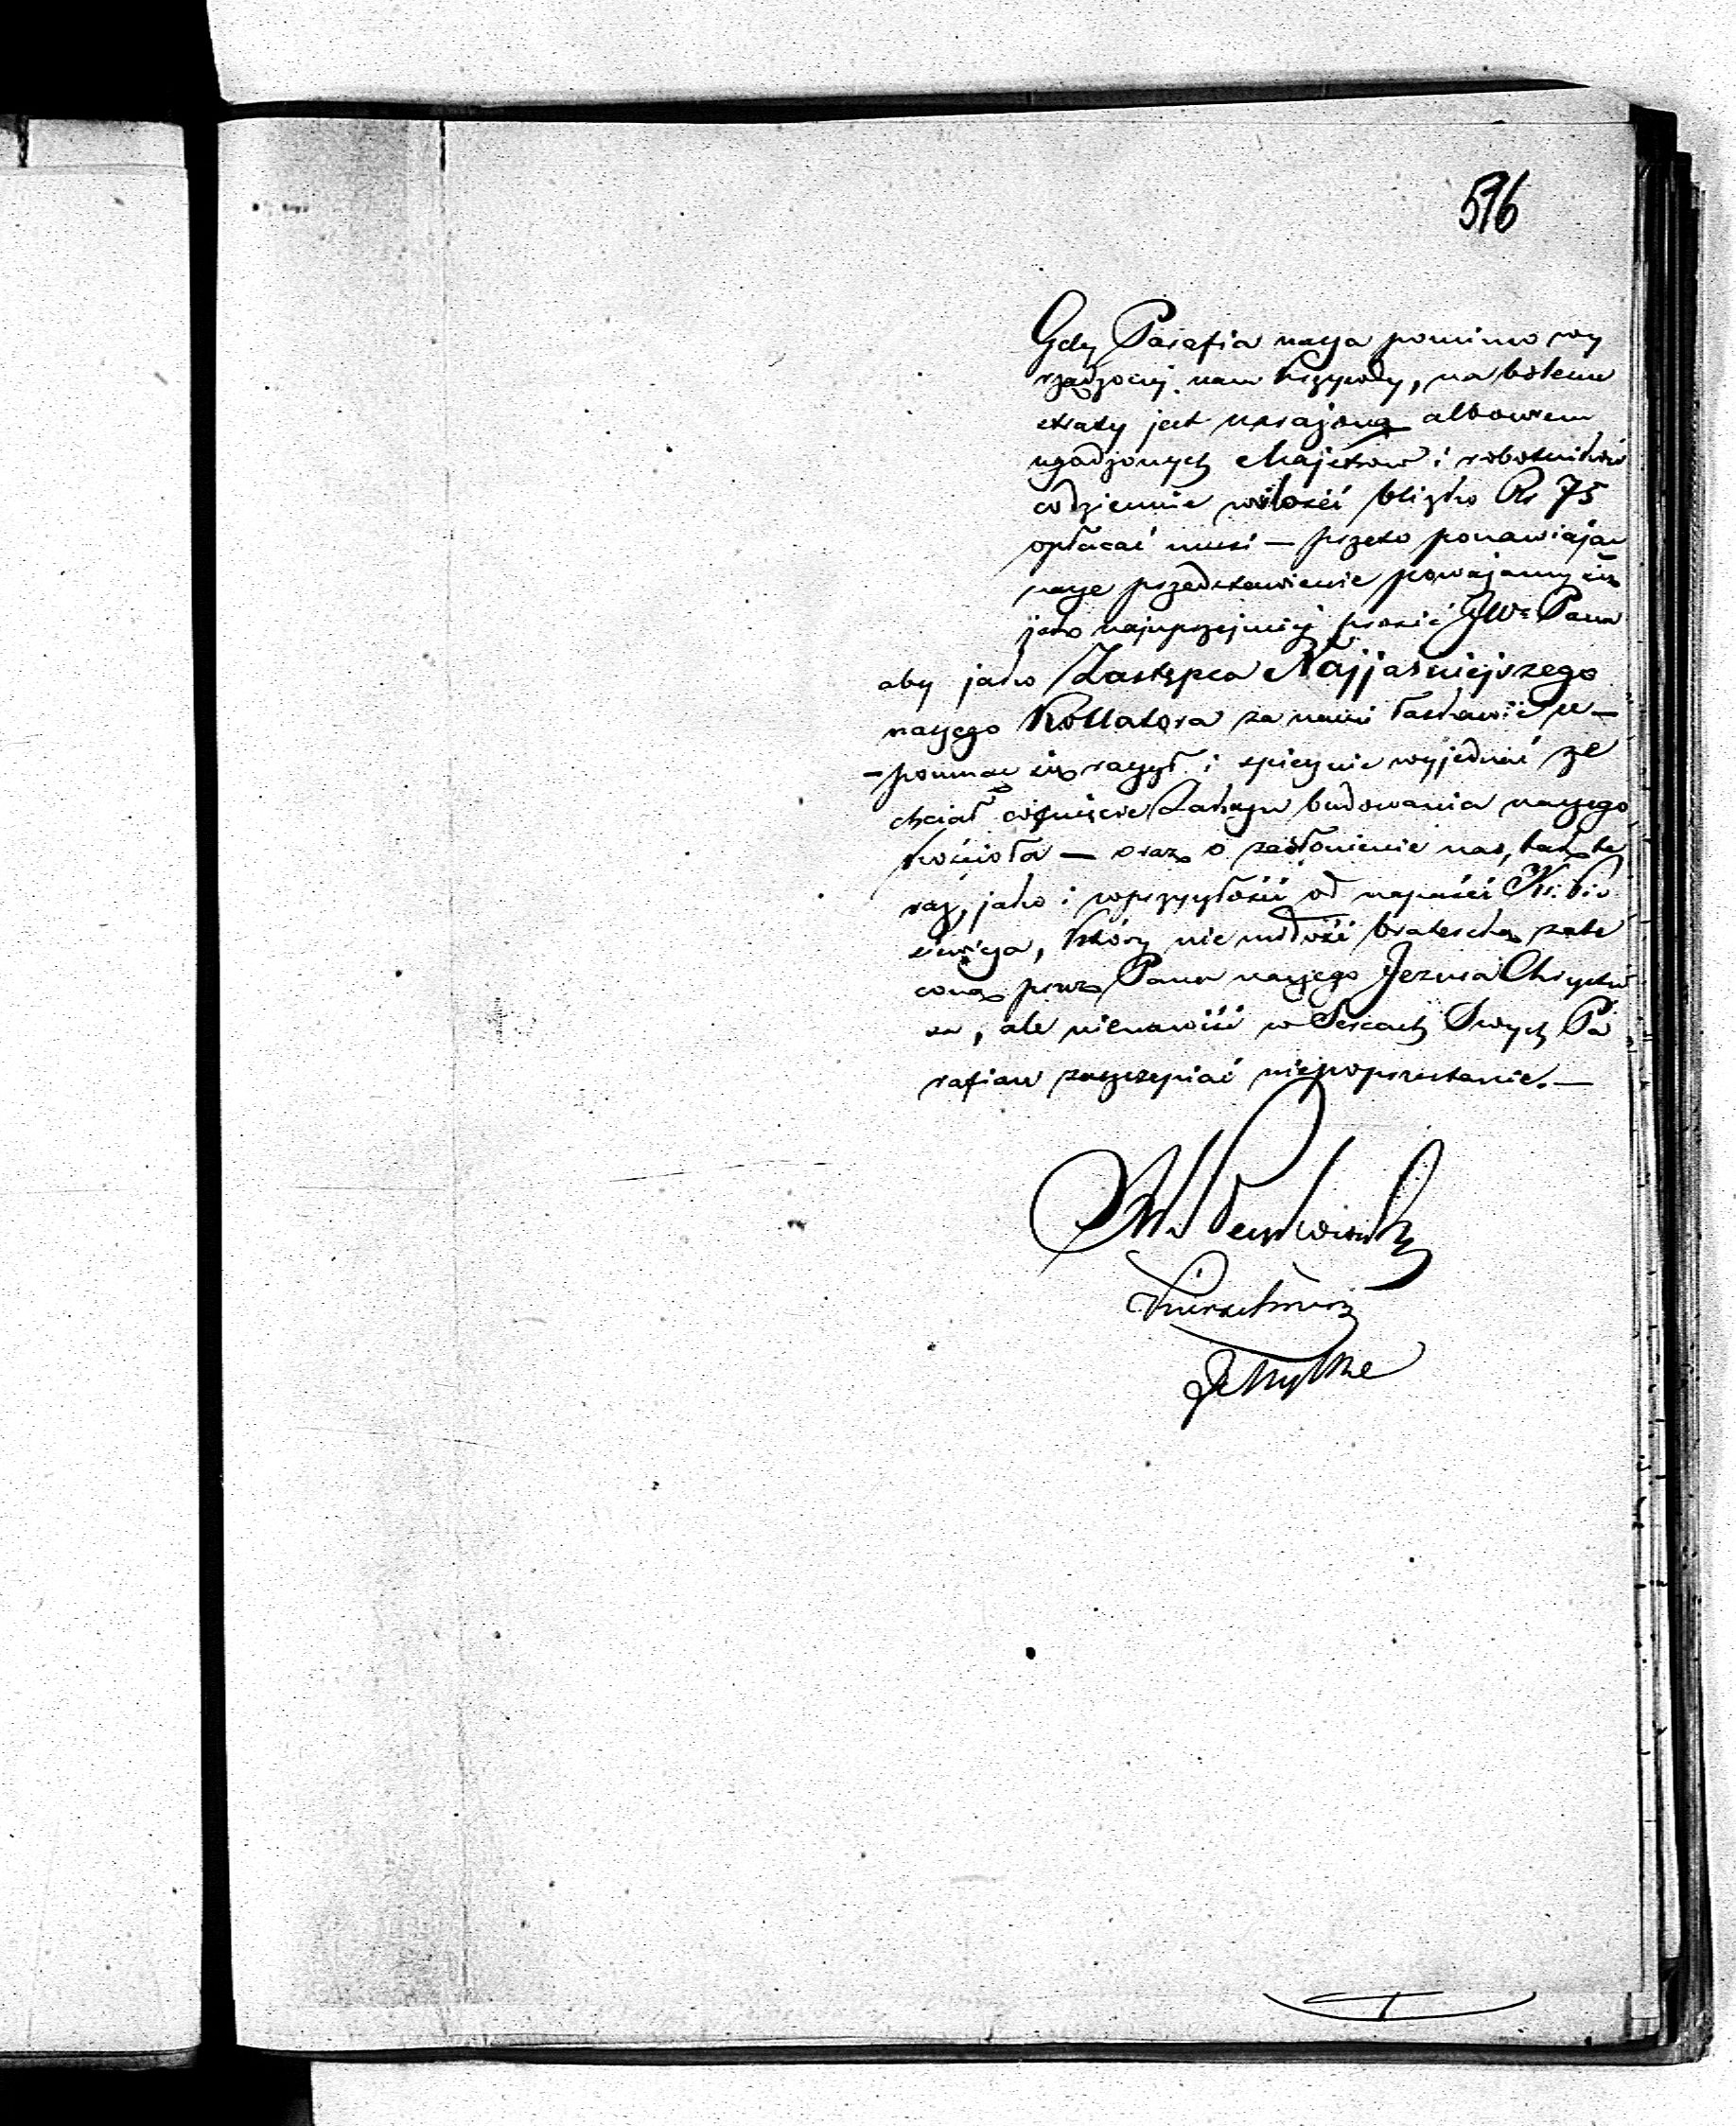 576
Gdy Parafia nasza pomimo wy
rządzonej nam krzywdy, na
straty jest narażoną albowiem
ugodzonych Majstrow i robotników
codziennie w ilości blizko Rs 75
opłacać musi — przeto ponawiając
nasze przedstawienie poważamy się
jako najuprzejmiej prosić JWo Pana
aby jako Zastępca Najjaśniejszego
naszego Kollatora za nami łaskawie u-
-pomnieć się raczył i spiesznie wyjednać ze
chciał cofnięcie Zakazu budowania naszego
Kościoła — oraz o zasłonienie nas, tak te
raz, jako i w przyszłość od napaści
który nie miłość braterską zale
coną przez Pana naszego Jezusa Chrystu
sa, ale nienawiść w Sercach Swych Pa
rafian zaszczepiać nie poprzestanie. —